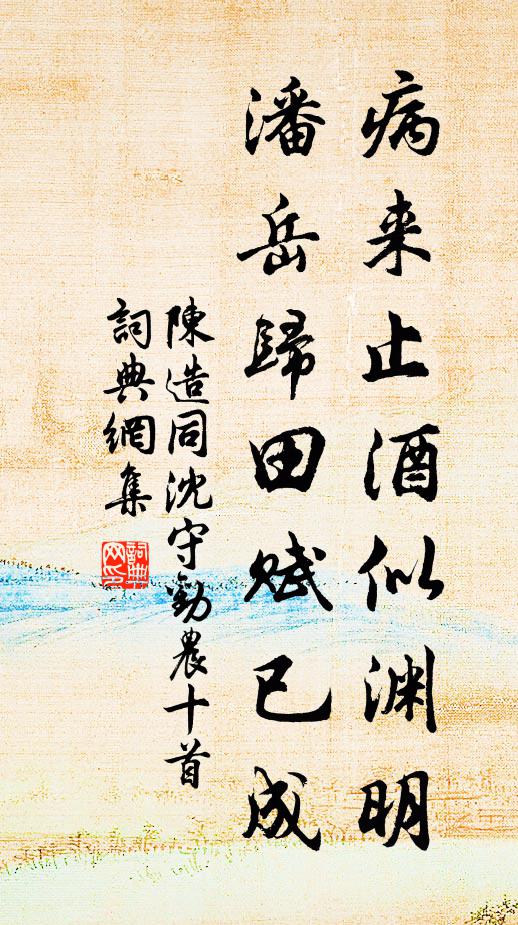 病来止酒似渊明
潘岳歸田賦已成
陳造同沈守勸農十首
詞典網集
詞典
网